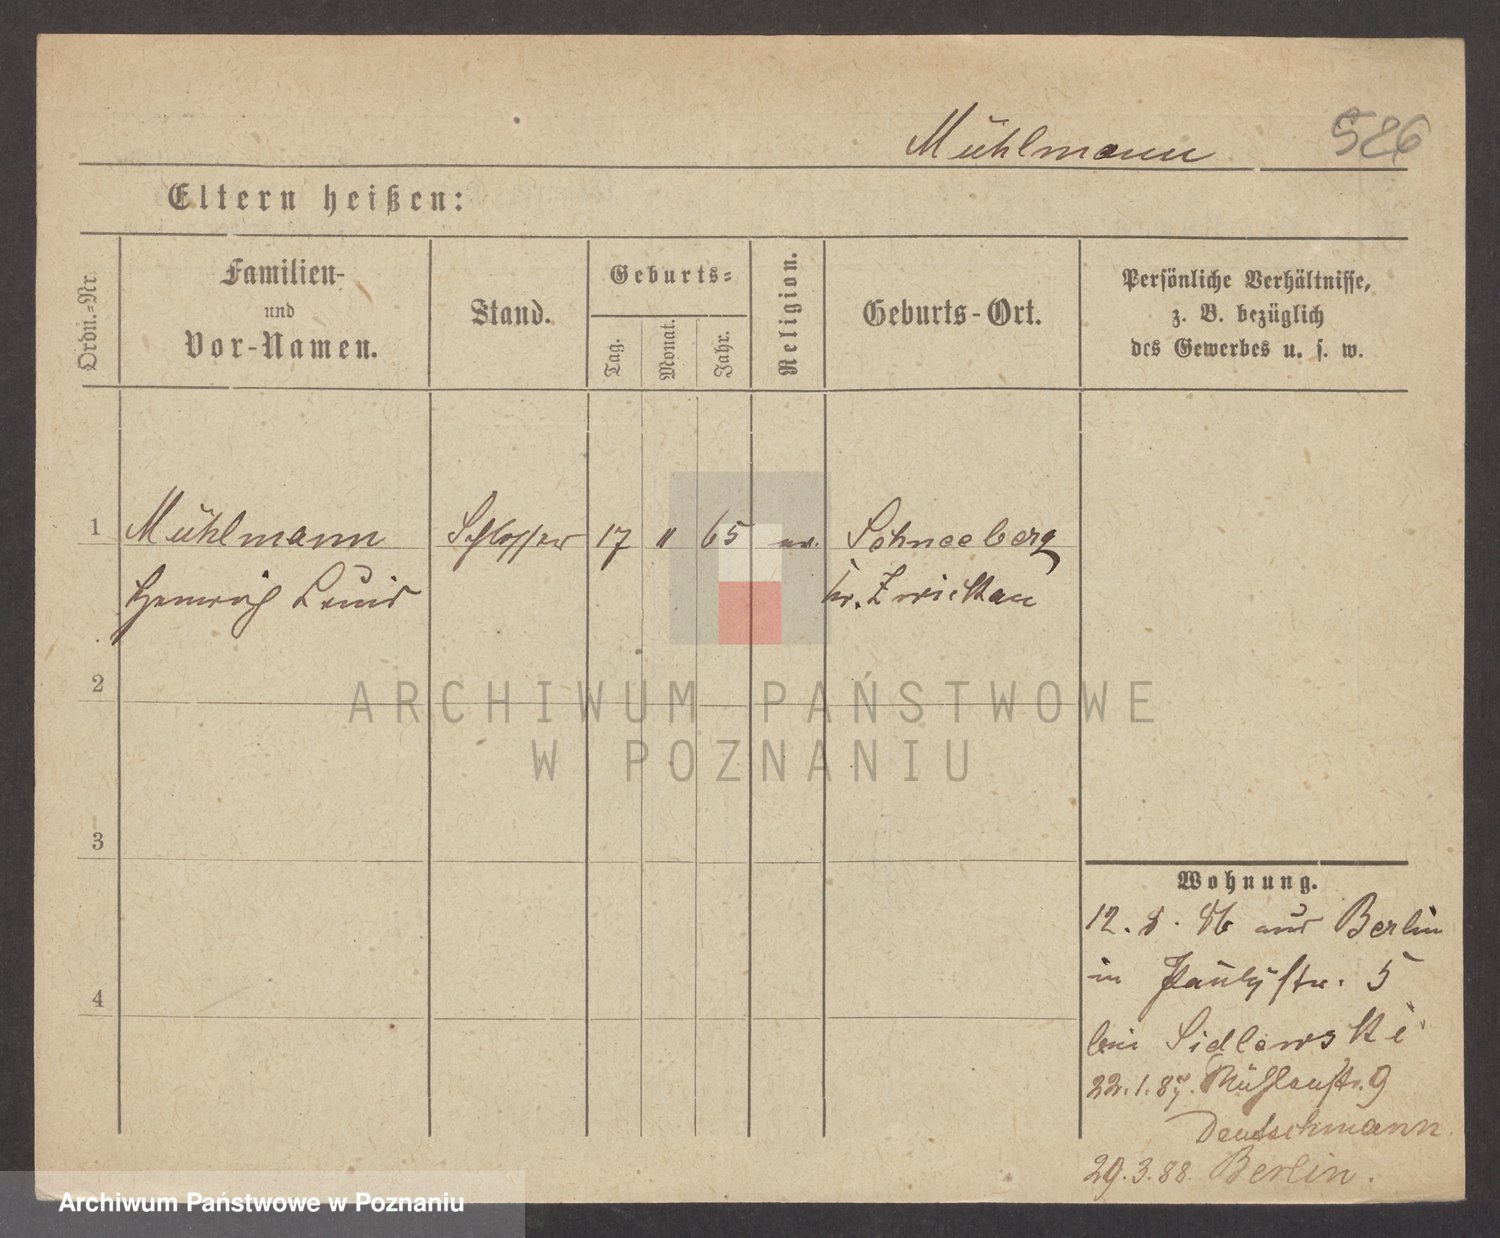 Mühlmann 526
Eltern heißen:
Ordn.-Nr.
Familien-
und
Vor-Namen.
Stand.
Geburts-
Tag.
Monat.
Jahr.
Religion.
Geburts-Ort.
Persönliche Verhältnisse,
z. B. bezüglich
des Gewerbes u. s. w.
1 Mühlmann Schlosser 17 " 65 ev. Schneeberg
Heinrich Louis Kr. Zwickau
2
ARCHIWUM PAŃSTWOWE
W POZNANIU
3
4
Wohnung.
12. 8. 86 aus Berlin
in Paulystr. 5
bei Sidlewski
22.1.87. Mühlenstr. 9
Deutschmann
29.3.88. Berlin.
Archiwum Państwowe w Poznaniu